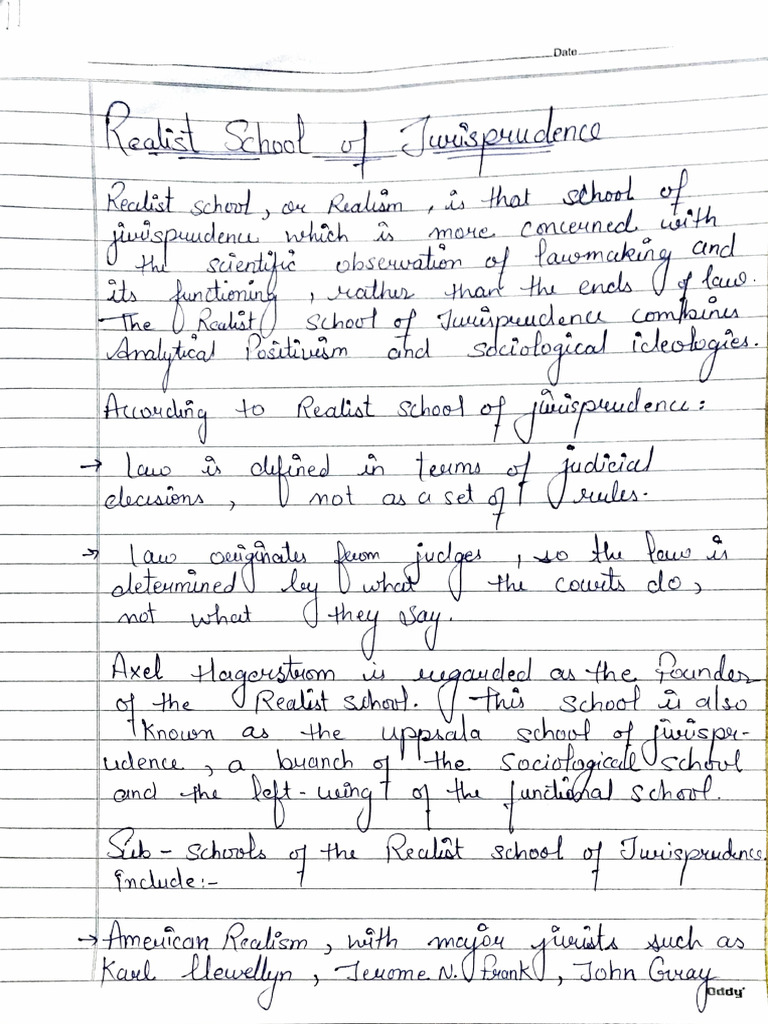 Date
Realist School of Jurisprudence
Realist school, or Realism, is that school of
jurisprudence which is more concerned with
the scientific observation of lawmaking and
its functioning, rather than the ends of law.
The Realist School of Jurisprudence combines
Analytical Positivism and sociological ideologies.
According to Realist school of jurisprudence:
→ Law is defined in terms of judicial
decisions, not as a set of rules.
→ Law originates from judges, so the law is
determined by what the courts do,
not what they say.
Axel Hagerstrom is regarded as the founder
of the Realist school. This school is also
known as the uppsala school of jurispr-
udence, a branch of the sociological school
and the left-wing of the functional school.
Sub-schools of the Realist school of Jurisprudence
include:-
→ American Realism, with major jurists such as
Karl Llewellyn, Jerome N. Frank, John Gray
Oddy